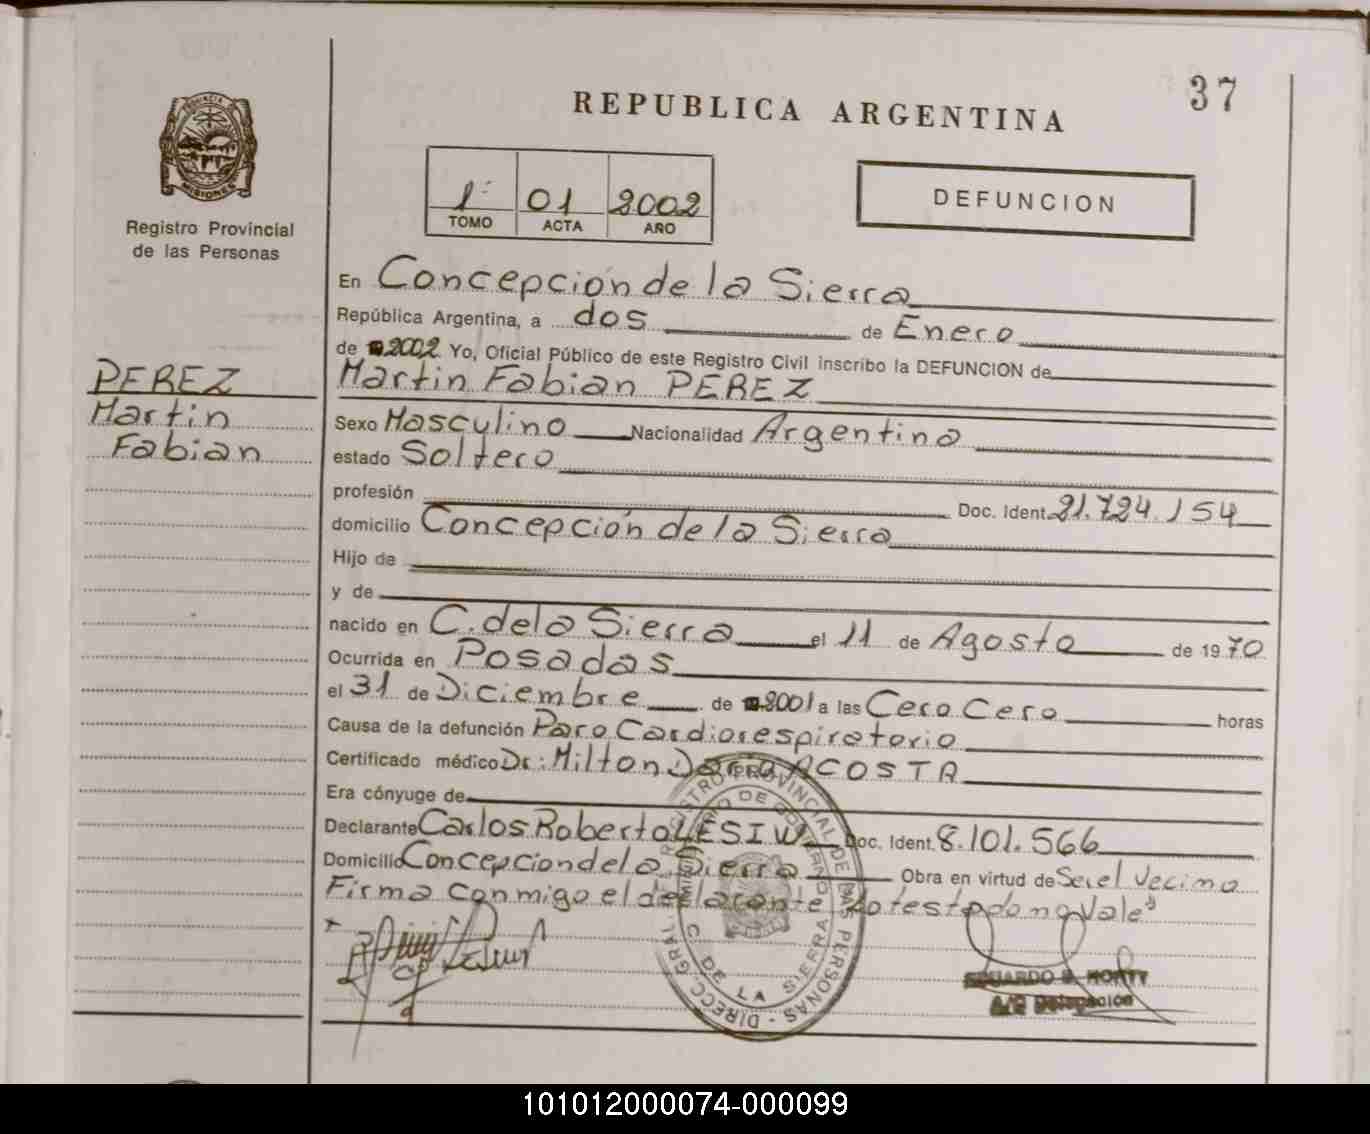 37
REPUBLICA ARGENTINA
PROVINCIA DE
MISIONES
Registro Provincial
de las Personas
1º 01 2002
TOMO ACTA AÑO
DEFUNCION
En Concepción de la Sierra
República Argentina, a dos de Enero
de 2002 Yo, Oficial Público de este Registro Civil inscribo la DEFUNCION de
Martin Fabian PEREZ
PEREZ
Martin
Fabian
Sexo Masculino Nacionalidad Argentina
estado Soltero
profesión Doc. Ident. 21.724.154
domicilio Concepción de la Sierra
Hijo de
y de
nacido en C. de la Sierra el 11 de Agosto de 1970
Ocurrida en Posadas
el 31 de Diciembre de 2001 a las Cero Cero horas
Causa de la defunción Paro Cardiorespiratorio
Certificado médico Dr: Milton Dario ACOSTA
Era cónyuge de
Declarante Carlos Roberto LESIW Doc. Ident. 8.101.566
Domicilio Concepcion de la Sierra Obra en virtud de Ser el Vecino
Firma conmigo el declarante Lo testado no Vale
REGISTRO PROVINCIAL DE LAS PERSONAS - DIRECC. GRAL.
MINISTERIO DE GOBIERNO
C. DE LA SIERRA
EDUARDO MONTY
A/C Delegación
101012000074-000099